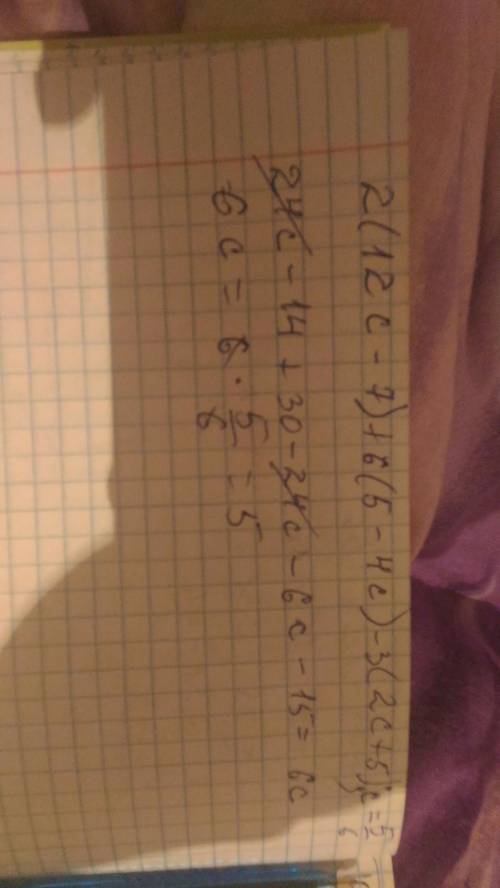 2(12c - 7) + 6(5 - 4c) - 3(2c + 5); c = 5/6
24c - 14 + 30 - 24c - 6c - 15 = 6c
6c = 6 · 5/6 = 5